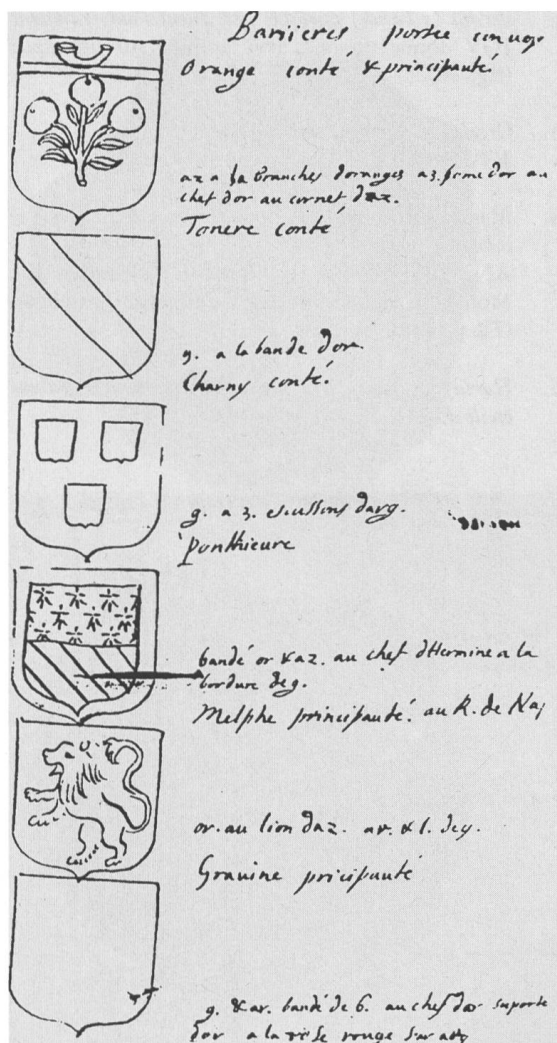 Banieres portee
Orange conté & principauté.
az a la branches doranges a 3. pome dor au
chef dor au cornet daz.
Tonere conté
g. a la bande dor.
Charny conté.
g. a 3. escussons darg.
ponthieure
bandé or & az. au chef dHermine a la
bordure de g.
Melphe principauté. au R. de Nap
or. au lion daz. ar. & l. de g.
Gravine pricipauté
g. & ar. bandé de 6. au chef dor suporte
dor a la rose rouge